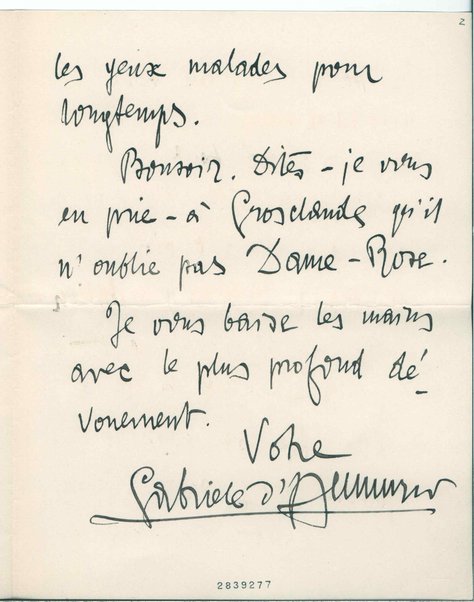 2
les yeux malades pour
longtemps.
Bonsoir. Dites - je vous
en prie - à Grosclaude qu'il
n'oublie pas Dame-Rose.
Je vous baise les mains
avec le plus profond dé-
vouement.
Votre
Gabriele d'Annunzio
2839277